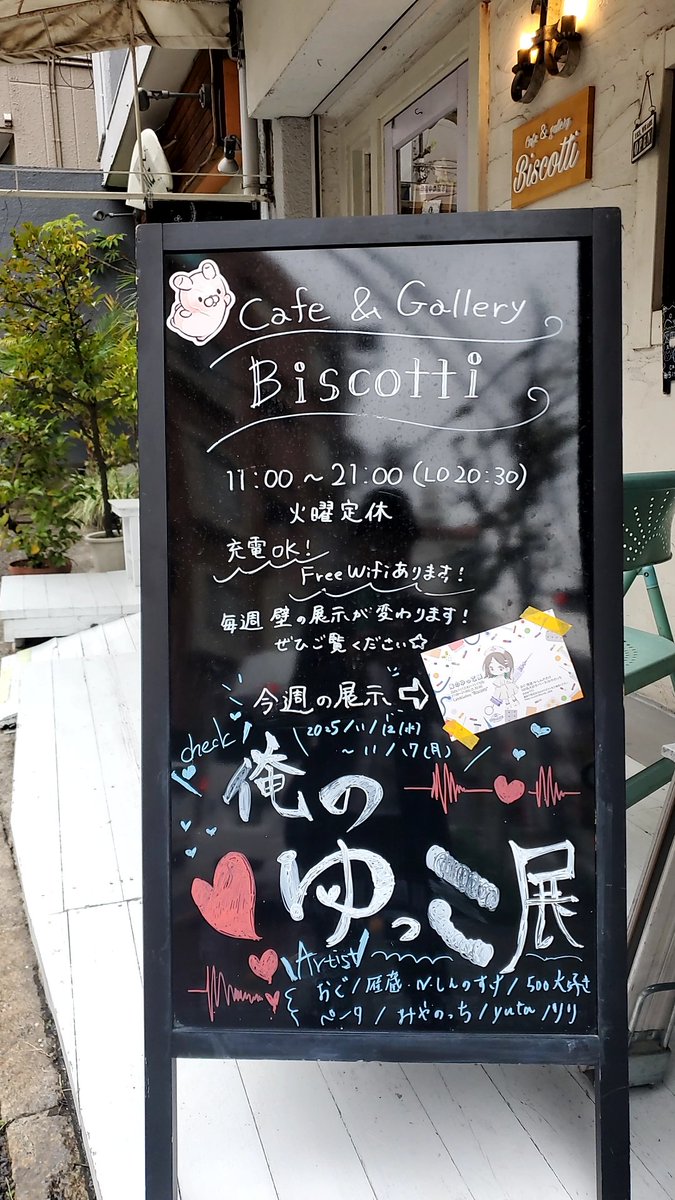 Cafe & gallery
Biscotti
Cafe & Gallery
Biscotti
11:00 ~ 21:00 (LO 20:30)
火曜定休
充電OK!
Free Wifiあります!
毎週 壁の展示が変わります!
ぜひご覧ください☆
今週の展示⇨
2025/11/12(水)
~11/17(月)
check
俺の
ゆっこ展
Artist
おぐ/雁蔵・N・しんのすけ/500大好き
ペンタ/みやのっち/yuta/リリ